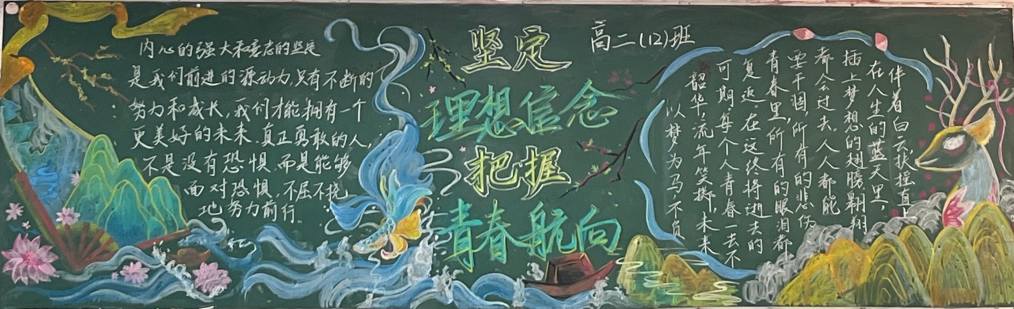 内心的强大和意志的坚定
是我们前进的源动力,只有不断的
努力和成长,我们才能拥有一个
更美好的未来.真正勇敢的人,
不是没有恐惧,而是能够
面对恐惧,不屈不挠,
地努力前行.
坚定
高二(12)班
理想信念
把握
青春航向
伴着白云扶摇直上
在人生的蓝天里,
插上梦想的翅膀翱翔
都会过去,人人都能
要干涸,所有的悲伤
青春里,所有的眼泪都
复返,在这终将逝去的
可期,每个人青春一去不
韶华,流年笑掷,未来
以梦为马,不负